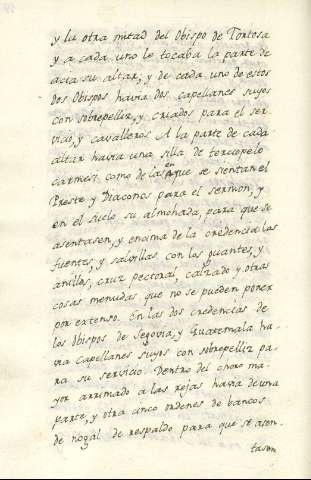 y la otra mitad del Obispo de Tortosa
y a cada uno le tocaba la parte de
acia su altar, y de cada uno de estos
dos Obispos havia dos capellanes suyos
con sobrepelliz, y criados para el ser-
vicio, y cavalleros A la parte de cada
altar havia una silla de terciopelo
carmesi como de las en que se sientan el
Preste y Diaconos para el sermon, y
en el suelo su almohada, para que se
asentasen, y encima de la credencia las
fuentes, y salvillas con los guantes, y
anillos, cruz pectoral, calzado y otras
cosas menudas que no se pueden poner
por extenso. En las dos credencias de
los Obispos de Segovia, y Guatemala ha-
via Capellanes suyos con sobrepelliz pa-
ra su servicio. Dentro del choro ma-
yor arrimado a las rejas havia de una
parte, y otra cinco ordenes de bancos
de nogal de respaldo para que se asen-
tasen